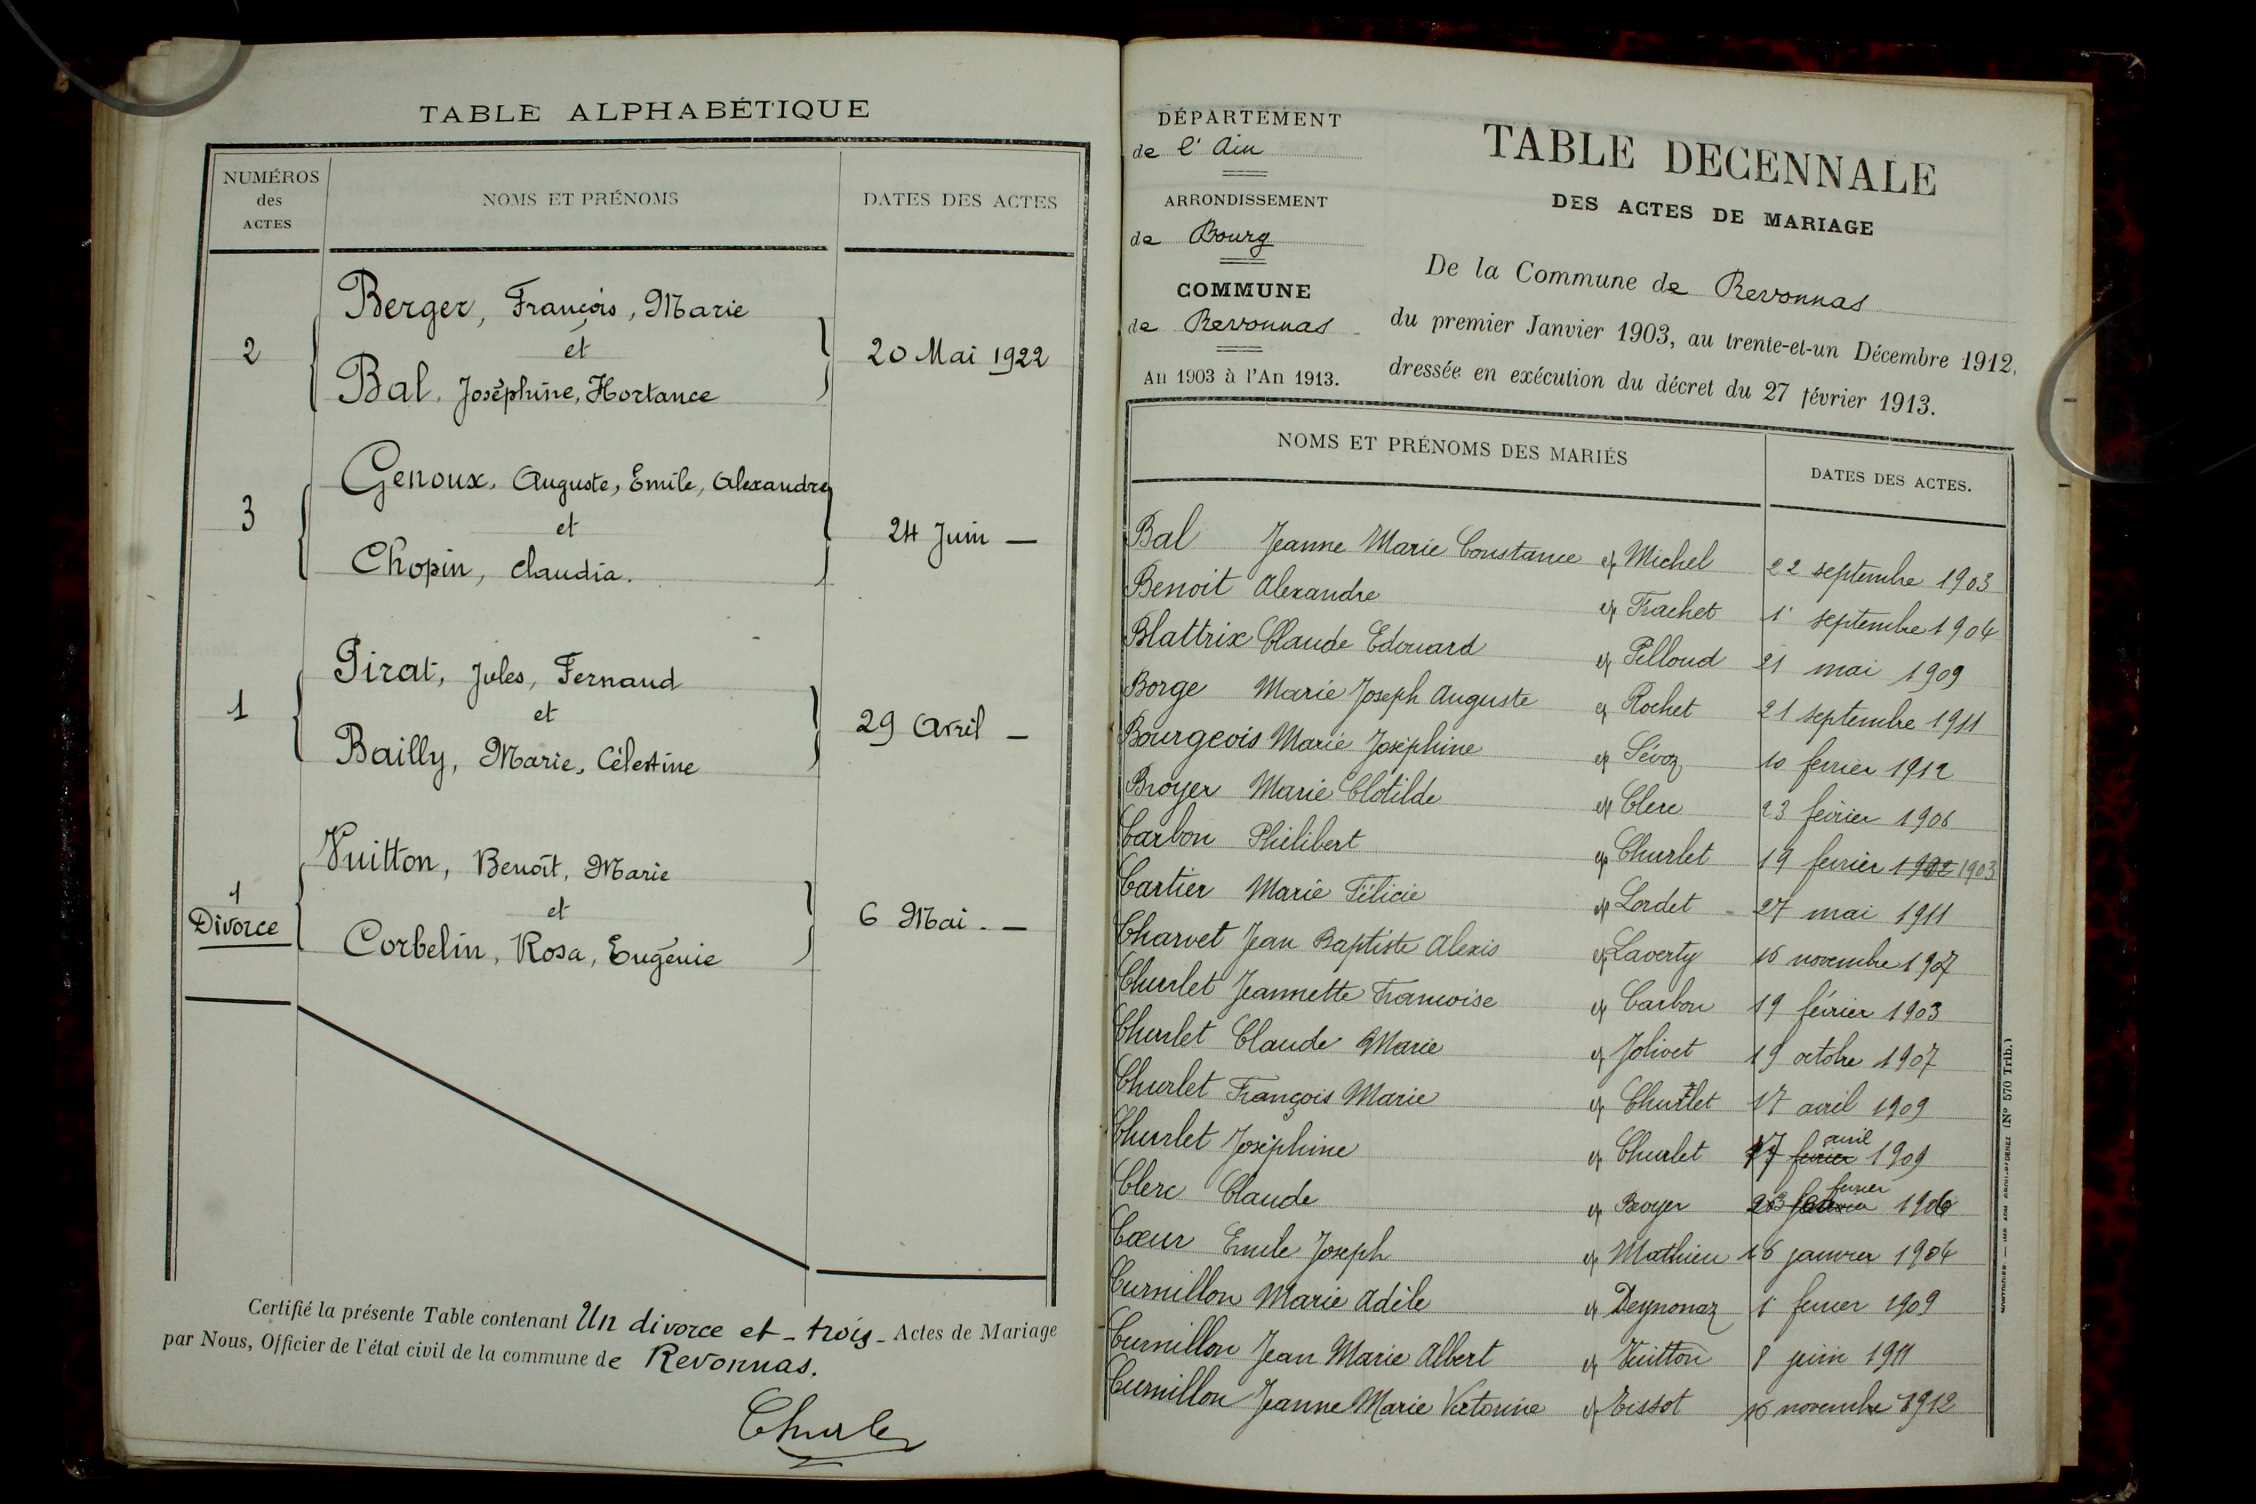 TABLE ALPHABÉTIQUE
NUMÉROS
des
ACTES
NOMS ET PRÉNOMS
DATES DES ACTES
Berger, François, Marie
2 et 20 Mai 1922
Bal, Joséphine, Hortance
Genoux, Auguste, Emile, Alexandre
3 et 24 Juin —
Chopin, Claudia.
Pirat, Jules, Fernand
1 et 29 Avril —
Bailly, Marie, Célestine
Vuitton, Benoît, Marie
1
Divorce et 6 Mai. —
Corbelin, Rosa, Eugénie
Certifié la présente Table contenant Un divorce et - trois - Actes de Mariage
par Nous, Officier de l'état civil de la commune de Revonnas.
Churlet
DÉPARTEMENT
de l'Ain
ARRONDISSEMENT
de Bourg
COMMUNE
de Revonnas
An 1903 à l'An 1913.
TABLE DECENNALE
DES ACTES DE MARIAGE
De la Commune de Revonnas
du premier Janvier 1903, au trente-et-un Décembre 1912,
dressée en exécution du décret du 27 février 1913.
NOMS ET PRÉNOMS DES MARIÉS
DATES DES ACTES.
Bal Jeanne Marie Constance ep Michel 22 septembre 1903
Benoit Alexandre ep Trachet 1er septembre 1904
Blattrix Claude Edouard ep Pilloud 21 mai 1909
Borge Marie Joseph Auguste ep Rochet 21 septembre 1911
Bourgeois Marie Joséphine ep Sévoz 10 fevrier 1912
Broyer Marie Clotilde ep Clerc 23 février 1906
Carbon Philibert ep Churlet 19 fevrier 1902 1903
Cartier Marie Félicie ep Lordet 27 mai 1911
Charvet Jean Baptiste Alexis ep Laverty 16 novembre 1907
Churlet Jeannette Francoise ep Carbon 19 février 1903
Churlet Claude Marie ep Jolivet 19 octobre 1907
Churlet François Marie ep Churlet 17 avril 1909
Churlet Joséphine ep Churlet 17 fevrier avril 1909
Clerc Claude ep Broyer 23 fevrier 1906
Cœur Emile Joseph ep Mathieu 16 janvier 1904
Curnillon Marie Adèle ep Deynonaz 1er fevrier 1909
Curnillon Jean Marie Albert ep Vuitton 8 juin 1911
Curnillon Jeanne Marie Victorine ep Tissot 16 novembre 1912
(No 570 Trib.)